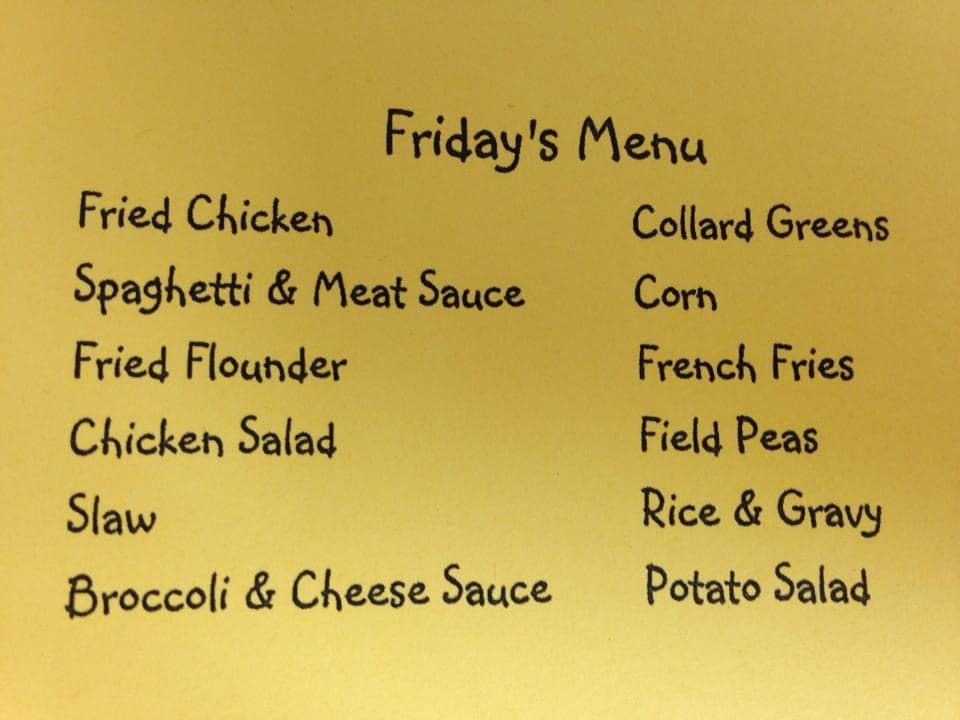 Friday's Menu
Fried Chicken
Spaghetti & Meat Sauce
Fried Flounder
Chicken Salad
Slaw
Broccoli & Cheese Sauce
Collard Greens
Corn
French Fries
Field Peas
Rice & Gravy
Potato Salad